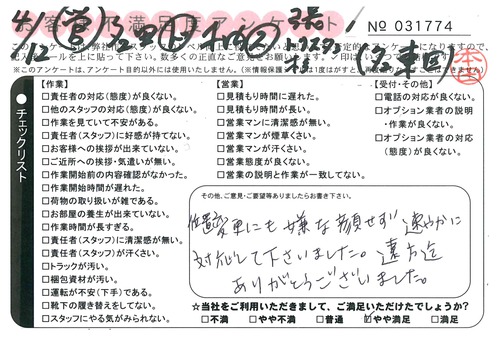 お客様不満足度アンケート
№ 031774
4/12
(営)
チェックリスト
【作業】
□責任者の対応(態度)が良くない。
□他のスタッフの対応(態度)が良くない。
□作業を見ていて不安がある。
□責任者(スタッフ)に好感が持てない。
□お客様への挨拶が出来ていない。
□ご近所への挨拶・気遣いが無い。
□作業開始前の内容確認がなかった。
□作業開始時間が遅れた。
□荷物の取り扱いが雑である。
□お部屋の養生が出来ていない。
□作業時間が長すぎる。
□責任者(スタッフ)に清潔感が無い。
□責任者(スタッフ)が汗くさい。
□トラックが汚い。
□梱包資材が汚い。
□運転が不安(下手)である。
□靴下の履き替えをしてない。
□スタッフにやる気がみられない。
【営業】
□見積もり時間に遅れた。
□見積もり時間が長い。
□営業マンに清潔感が無い。
□営業マンが煙草くさい。
□営業マンが汗くさい。
□営業態度が良くない。
□営業の説明と作業が一致してない。
【受付・その他】
□電話の対応が良くない。
□オプション業者の説明
・作業が良くない。
□オプション業者の対応
(態度)が良くない。
その他、ご意見・ご要望等ありましたらお書き下さい。
位置変更にも嫌な顔せず 速やかに
対応して下さいました。遠方迄
ありがとうございました。
☆当社をご利用いただきまして、ご満足いただけたでしょうか?
□不満 □やや不満 □普通 ☑やや満足 □満足